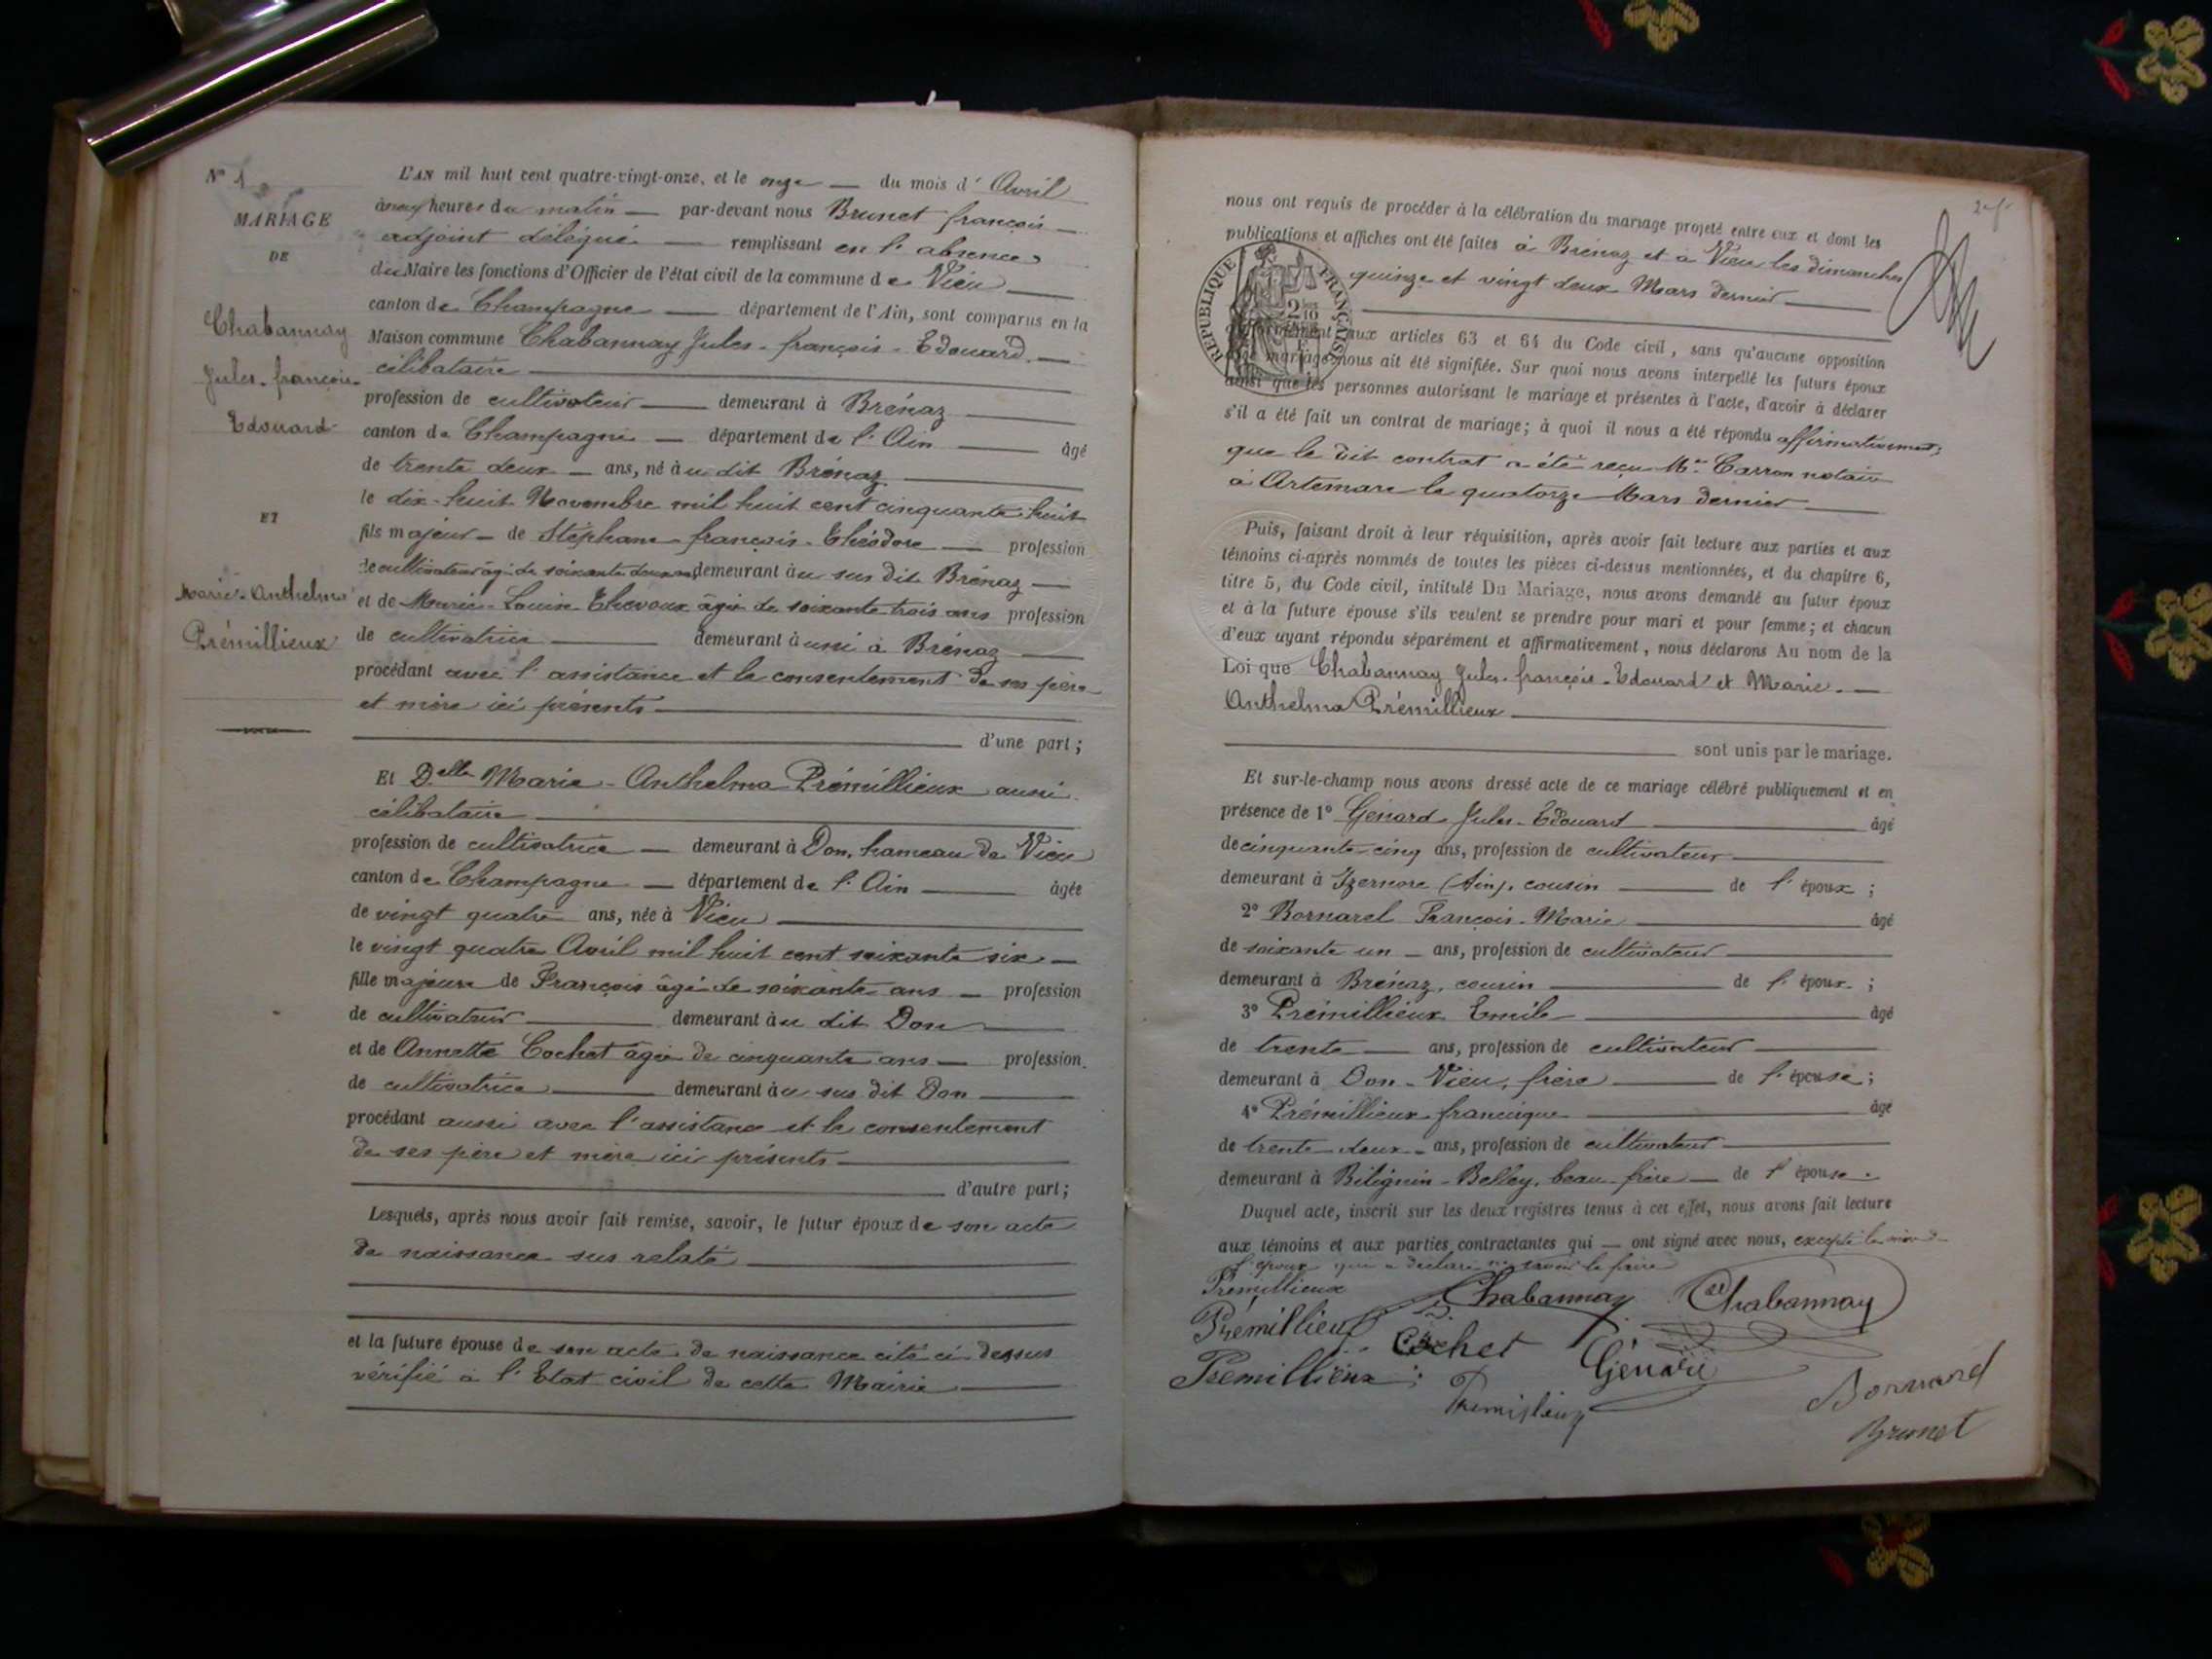 N° 1
MARIAGE
DE
Chabannay
Jules-françois-
Edouard
ET
Marie-Anthelma
Prémillieux
L'AN mil huit cent quatre-vingt-onze, et le onze — du mois d'Avril
à neuf heures du matin — par-devant nous Brunet françois —
adjoint délégué — remplissant en l'absence
du Maire les fonctions d'Officier de l'état civil de la commune de Vieu —
canton de Champagne — département de l'Ain, sont comparus en la
Maison commune Chabannay Jules-françois-Edouard —
célibataire —
profession de cultivateur — demeurant à Brénaz —
canton de Champagne — département de l'Ain — âgé
de trente deux — ans, né àu dit Brénaz —
le dix-huit Novembre mil huit cent cinquante huit
fils majeur — de Stéphane-françois-Théodore — profession
de cultivateur âgé de soixante douze ans demeurant àu sus dit Brénaz —
et de Marie-Louise Thevoux âgée de soixante trois ans profession
de cultivatrice — demeurant àussi à Brénaz —
procédant avec l'assistance et le consentement de ses père
et mère ici présents —
d'une part ;
Et Delle Marie-Anthelma Prémillieux aussi
célibataire —
profession de cultivatrice — demeurant à Don, hameau de Vieu
canton de Champagne — département de l'Ain — âgée
de vingt quatre ans, née à Vieu —
le vingt quatre Avril mil huit cent soixante six —
fille majeure de François âgé de soixante ans — profession
de cultivateur — demeurant àu dit Don —
et de Annette Cochet âgée de cinquante ans — profession
de cultivatrice — demeurant àu sus dit Don —
procédant aussi avec l'assistance et le consentement
de ses père et mère ici présents —
d'autre part ;
Lesquels, après nous avoir fait remise, savoir, le futur époux de son acte
de naissance sus relaté —
et la future épouse de son acte de naissance cité ci-dessus
vérifié à l'Etat civil de cette Mairie —
nous ont requis de procéder à la célébration du mariage projeté entre eux et dont les
publications et affiches ont été faites à Brénaz et à Vieu les dimanches
quinze et vingt deux Mars dernier —
RÉPUBLIQUE FRANÇAISE
aux articles 63 et 64 du Code civil, sans qu'aucune opposition
mariage nous ait été signifiée. Sur quoi nous avons interpellé les futurs époux
ainsi que les personnes autorisant le mariage et présentes à l'acte, d'avoir à déclarer
s'il a été fait un contrat de mariage ; à quoi il nous a été répondu affirmativement ;
que le dit contrat a été reçu Me Carron notaire
à Artemare le quatorze Mars dernier —
Puis, faisant droit à leur réquisition, après avoir fait lecture aux parties et aux
témoins ci-après nommés de toutes les pièces ci-dessus mentionnées, et du chapitre 6,
titre 5, du Code civil, intitulé Du Mariage, nous avons demandé au futur époux
et à la future épouse s'ils veulent se prendre pour mari et pour femme ; et chacun
d'eux ayant répondu séparément et affirmativement, nous déclarons Au nom de la
Loi que Chabannay Jules-françois-Edouard et Marie- —
Anthelma Prémillieux —
sont unis par le mariage.
Et sur-le-champ nous avons dressé acte de ce mariage célébré publiquement et en
présence de 1° Génard Jules-Edouard — âgé
de cinquante cinq ans, profession de cultivateur —
demeurant à Izernore (Ain), cousin — de l'époux ;
2° Bornarel François-Marie — âgé
de soixante un — ans, profession de cultivateur —
demeurant à Brénaz, cousin — de l'époux ;
3° Prémillieux Emile — âgé
de trente — ans, profession de cultivateur —
demeurant à Don-Vieu, frère — de l'épouse ;
4° Prémillieux francisque — âgé
de trente-deux — ans, profession de cultivateur —
demeurant à Bitignin-Belley, beau-frère — de l'épouse.
Duquel acte, inscrit sur les deux registres tenus à cet effet, nous avons fait lecture
aux témoins et aux parties contractantes qui — ont signé avec nous, excepté la mère de
l'époux qui a déclaré ne savoir le faire
Prémillieux Chabannay Chabannay
Prémillieux Cochet Génard
Prémillieux
Bornarel
Brunet